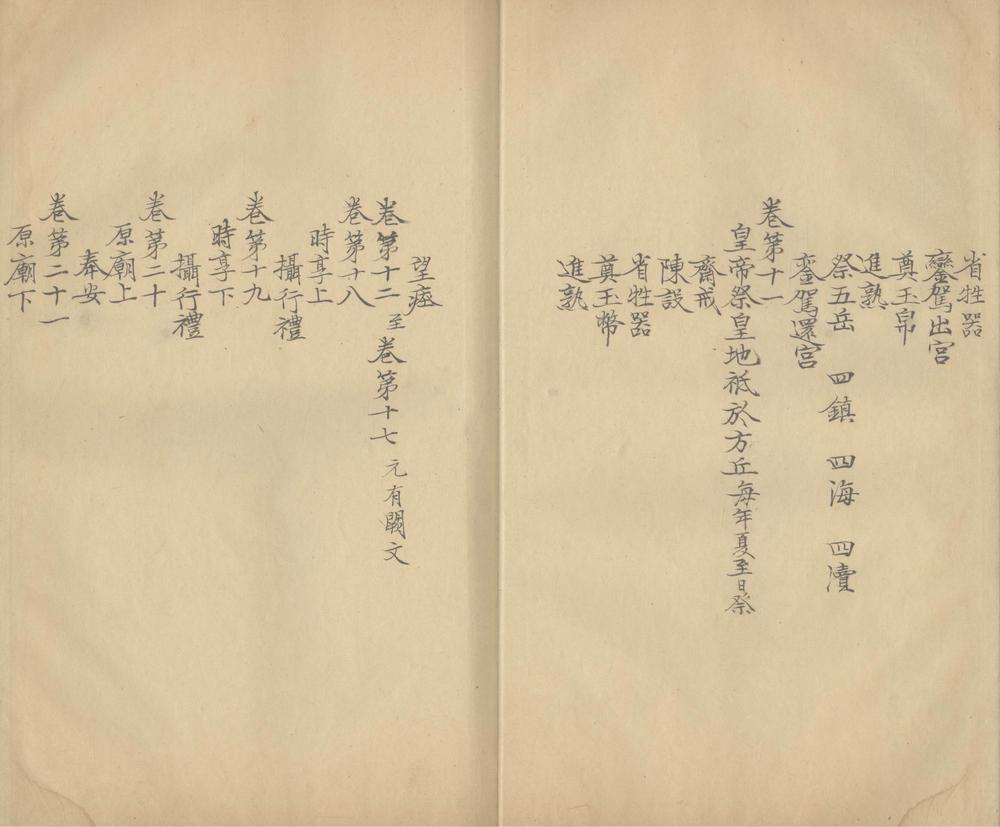 省牲器
鑾駕出宮
尊玉帛
進熟
祭五岳 四鎮 四海 四瀆
鑾駕還宮
卷第十一
皇帝祭皇地祇於方丘每年夏至日祭
齋戒
陳設
省牲器
奠玉幣
進熟
望瘞
卷第十二至卷第十七元有闕文
卷第十八
時享上
攝行禮
卷第十九
時享下
攝行禮
卷第二十
原廟上
奉安
卷第二十一
原廟下